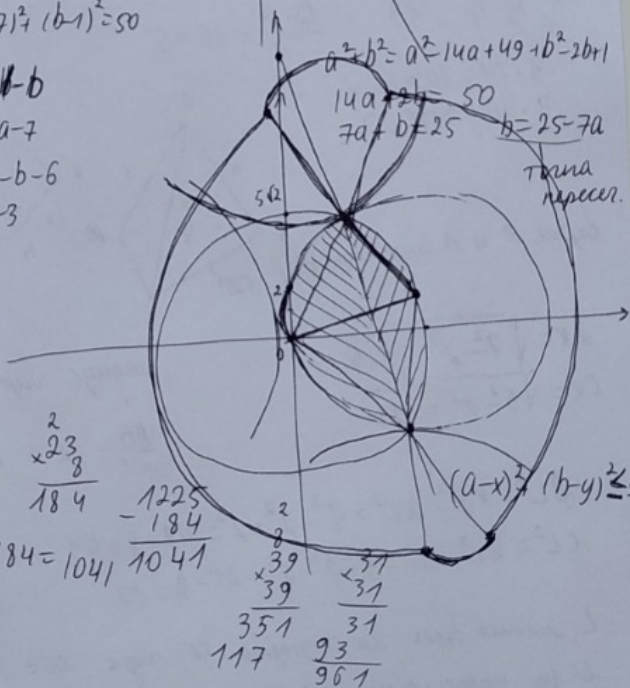 7)²+ (b-1)²=50
-b
a-7
-b-6
-3
a²+b²= a²-14a+49+b²-2b+1
14a+2b= 50
7a+b=25
b=25-7a
точка
пересеч.
5√2
2
0
(a-x)²+ (b-y)²≤
2
×23
8
184
-1225
184
1041
184=1041
2
8
×39
39
351
117
×31
31
31
93
961